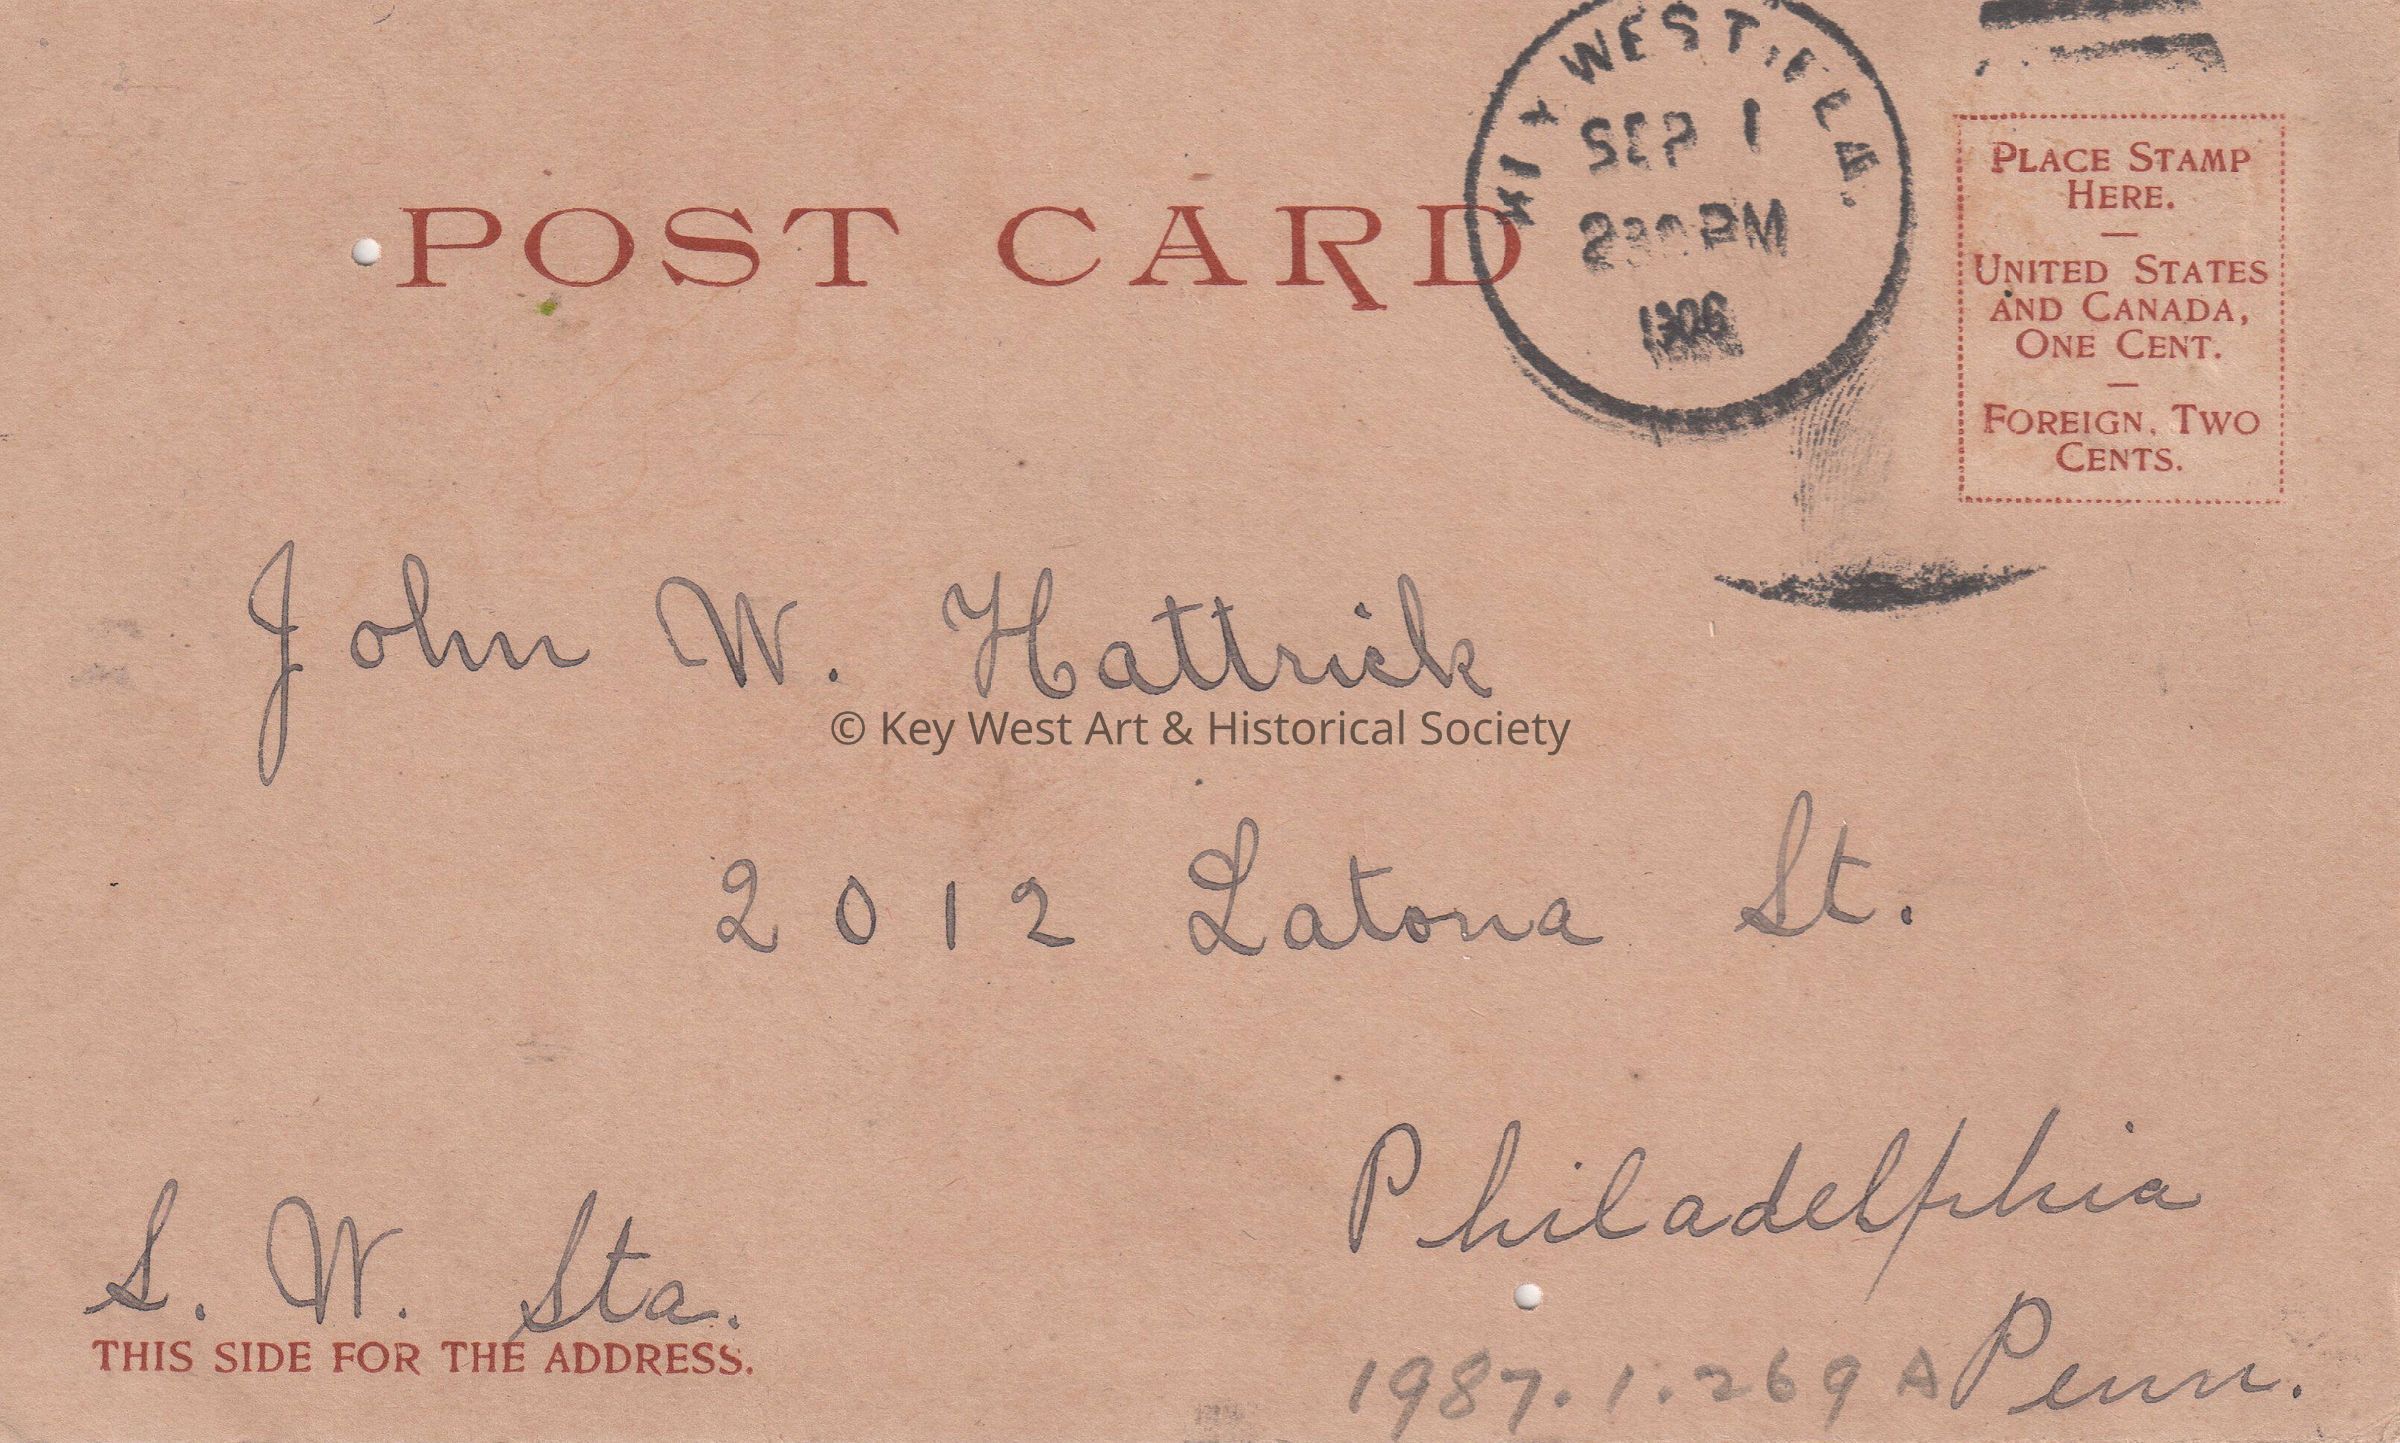 KEY WEST, FLA.
SEP 1
230 PM
1906
POST CARD
PLACE STAMP
HERE.
—
UNITED STATES
AND CANADA,
ONE CENT.
—
FOREIGN, TWO
CENTS.
John W. Hattrick
© Key West Art & Historical Society
2012 Latona St.
Philadelphia
S. W. Sta.
Penn.
THIS SIDE FOR THE ADDRESS.
1987.1.269 A